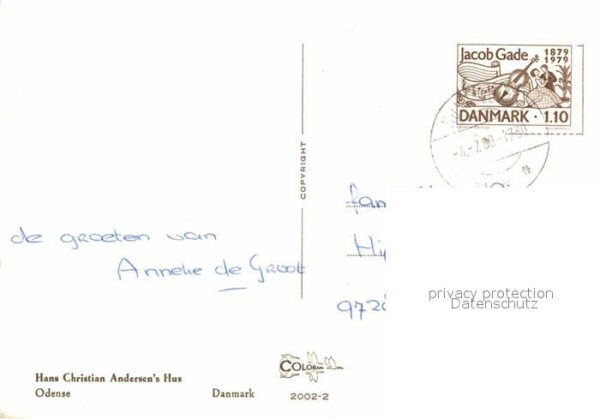 Jacob Gade 1879 1979
DANMARK · 1.10
COPYRIGHT
de groeten van
Anneke de Groot
privacy protection
Datenschutz
COLOR
Hans Christian Andersen's Hus
Odense Danmark 2002-2